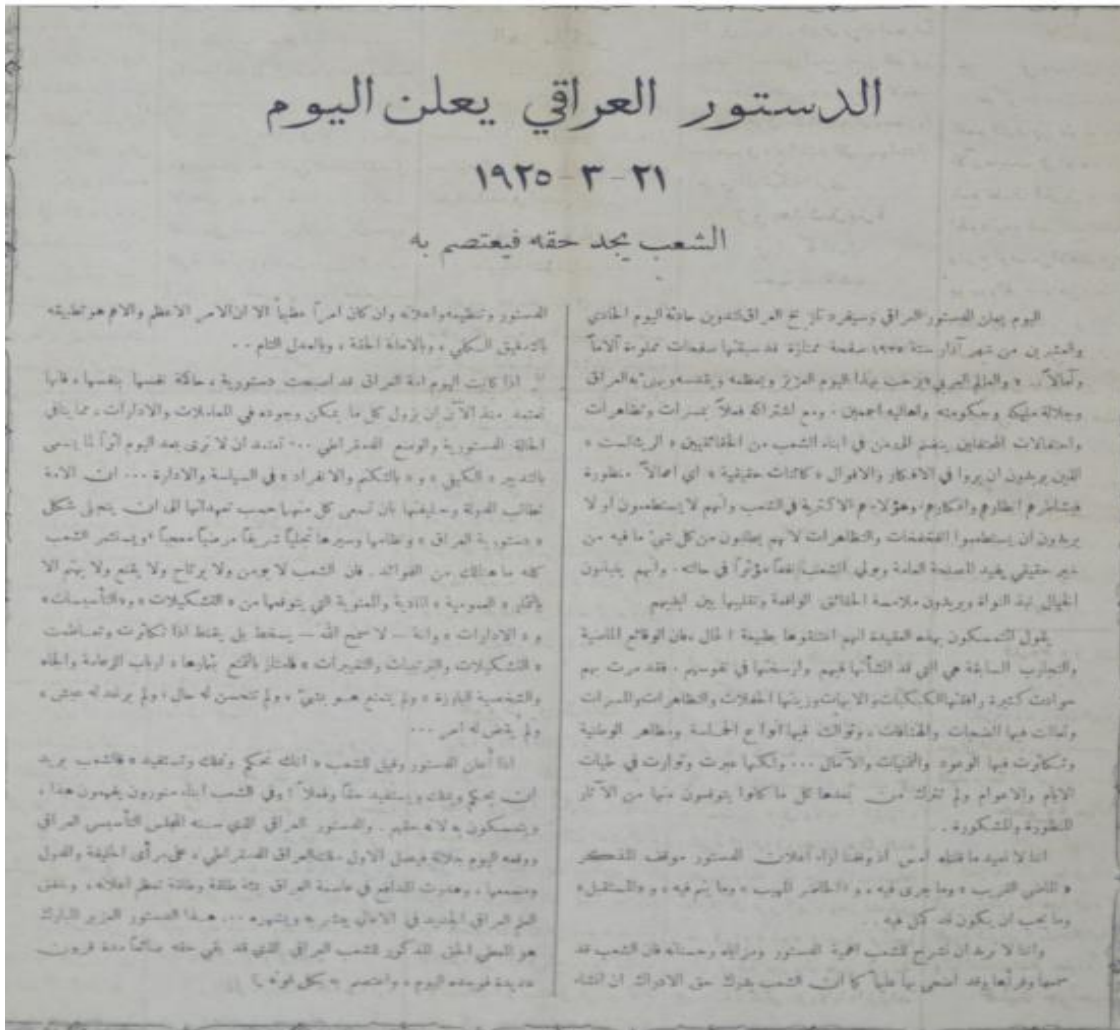 الدستور العراقي يعلن اليوم
٢١ - ٣ - ١٩٢٥
الشعب يجد حقه فيعتصم به
اليوم يعلن الدستور العراقي وسيفرد تاريخ العراق لتدوين حادثة اليوم الحادي
والعشرين من شهر آذار سنة ١٩٢٥ صفحة ممتازة قد سبقتها صفحات مملوءة آلاماً
وآمالاً . « والعالم العربي » يرحب بهذا اليوم العزيز ويعظمه ويقدسه العراق
وجلالة مليكه وحكومته واهاليه اجمعين . ومع اشتراكه فعلاً بمسرات وتظاهرات
واحتفالات المحتفلين ينضم الى من في ابناء الشعب من الحقائقيين « الريالست »
الذين يريدون ان يروا في الافكار والاقوال « كائنات حقيقية » اي اعمالاً منظورة
فيشاطرهم انظارهم وافكارهم ، وهؤلاء هم الاكثرية في الشعب وانهم لا يستطعمون او لا
يريدون ان يستطعموا الفخفخات والتظاهرات لانهم يطلبون من كل شيء ما فيه من
خير حقيقي يفيد المصلحة العامة ويولي الشعب نفعاً مؤثراً في حالته . وانهم ينبذون
الخيال نبذ النواة ويريدون ملامسة الحقائق الواقعة وتقليبها بين ايديهم
يقول المتمسكون بهذه العقيدة انهم اعتنقوها بطبيعة الحال ، فان الوقائع الماضية
والتجارب السابقة هي التي قد انشأتها فيهم وارسختها في نفوسهم . فقد مرت بهم
حوادث كثيرة رافقتها الكبكبات والابهات وزينتها الحفلات والتظاهرات والمسرات
وتعالت فيها الضجات والهتافات ، وتوالت فيها انواع الحماسة ومظاهر الوطنية
وتكاثرت فيها الوعود والتمنيات والآمال ... ولكنها عبرت وتوارت في طيات
الايام والاعوام ولم تترك من بعدها كل ما كانوا يتوقعون منها من الآثار
المنظورة والمشكورة .
اننا لا نعيد ما قلناه امس اذ وقفنا ازاء اعلان الدستور موقف المتذكر
« الماضي القريب » وما جرى فيه ، و « الحاضر المهيب » وما يتم فيه ، و « المستقبل »
وما يجب ان يكون قد كتل فيه .
واننا لا نريد ان نشرح للشعب اهمية الدستور ومزاياه وحسناته فان الشعب قد
سمعها وقرأها وقد كما ان الشعب يدرك حق الادراك ان انشاء
الدستور وتنظيمه واعلانه وان كان امراً عظيماً الا ان الامر الاعظم والاهم هو تطبيقه
بالتدقيق الكلي ، وبالامانة الحقة ، وبالعدل التام . .
اذا كانت اليوم امة العراق قد اصبحت دستورية ، حاكمة نفسها بنفسها ، فانها
تعتمد منذ الآن ان يزول كل ما يمكن وجوده في المعاملات والادارات ، مما ينافي
الحالة الدستورية والوضع الديمقراطي ... تعتمد ان لا ترى بعد اليوم اثراً لما يسمى
بالتدبير « الكيفي » و « بالتكتم والانفراد » في السياسة والادارة ... ان الامة
تطالب الدولة وحليفتها بان تسعى كل منهما حسب تعهداتها الى ان يتجلى شكل
« دستورية العراق » ونظامها وسيرها تجلياً شريفاً مرضياً معجباً ويستثمر الشعب
كله ما هنالك من الفوائد . فان الشعب لا يؤمن ولا يرتاح ولا يقنع ولا يهتم الا
« العمومية » المادية والمعنوية التي يتوقعها من « التشكيلات » و « التأسيسات »
و « الادارات » وانه — لا سمح الله — يسخط بل يقنط اذا تكاثرت وتعاظمت
« التشكيلات والترتيبات والتغييرات » ارباب الزعامة والجاه
والشخصية البارزة « ولم يتمتع هو بشيء » ، ولم تتحسن له حال ، ولم يرغد له عيش ،
ولم يقض له امر ...
اذا أعلن الدستور وقيل للشعب « انك تحكم وتملك وتستفيد » فالشعب يريد
ان يحكم ويملك ويستفيد حقاً وفعلاً ! وفي الشعب ابناء متنورون يفهمون هذا ،
ويتمسكون به لانه حقهم . والدستور العراقي الذي سنه المجلس التأسيسي العراقي
ووقعه اليوم جلالة فيصل الاول ، ملك العراق الديمقراطي ، على مرأى الخليفة والدول
ومسمعها ، وهدرت المدافع في عاصمة العراق بمئة طلقة وطلقة تعظم اعلانه ، وخفق
العلم العراقي الجديد في الاعالي يبشر به ويشهره ... هذا الدستور العزيز المبارك
هو المعطي الحق المذكور للشعب العراقي الذي قد بقي حقه ضائعاً مدة قرون
عديدة فوجده اليوم ، واعتصم به بكل قوته !